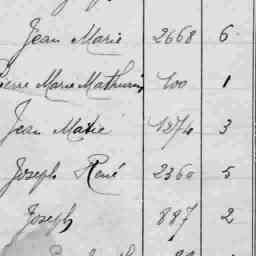 Jean Marie 2668 6
Pierre Marie Mathurin 400 1
Jean Marie 1274 3
Joseph René 2360 5
Joseph 887 2